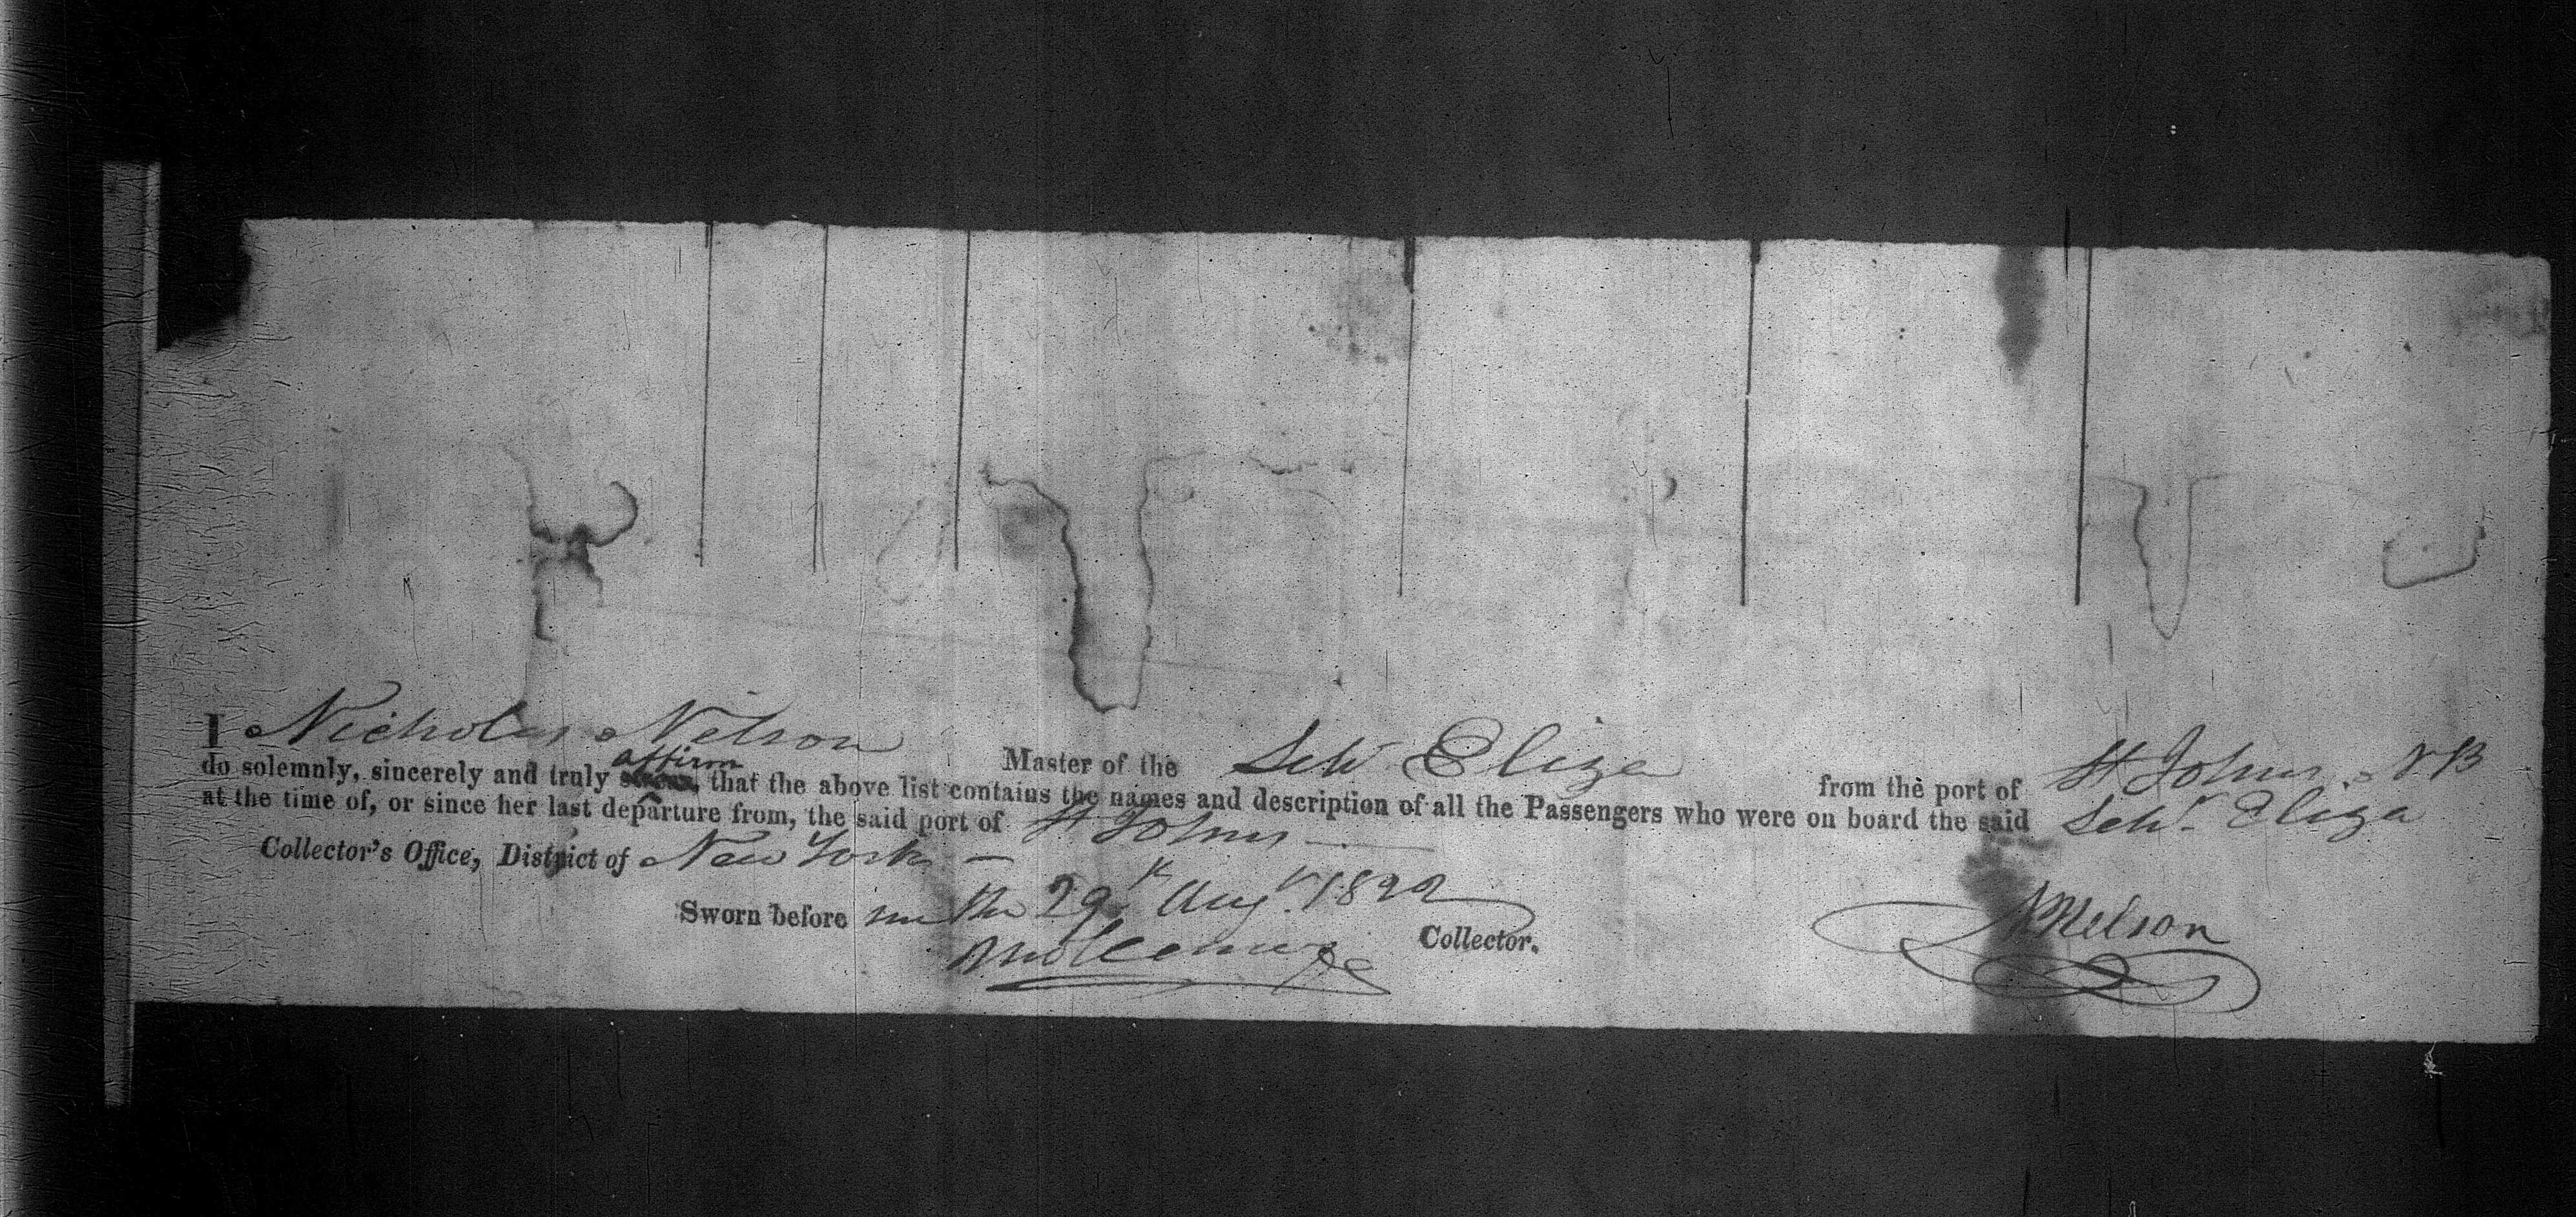 I Nicholas Nelson Master of the Schr Eliza from the port of St Johns N.B
do solemnly, sincerely and truly affirm that the above list contains the names and description of all the Passengers who were on board the said Schr. Eliza
at the time of, or since her last departure from, the said port of St Johns
Collector's Office, District of New York
Sworn before me the 29th Augt. 1822
Collector.
N Nelson